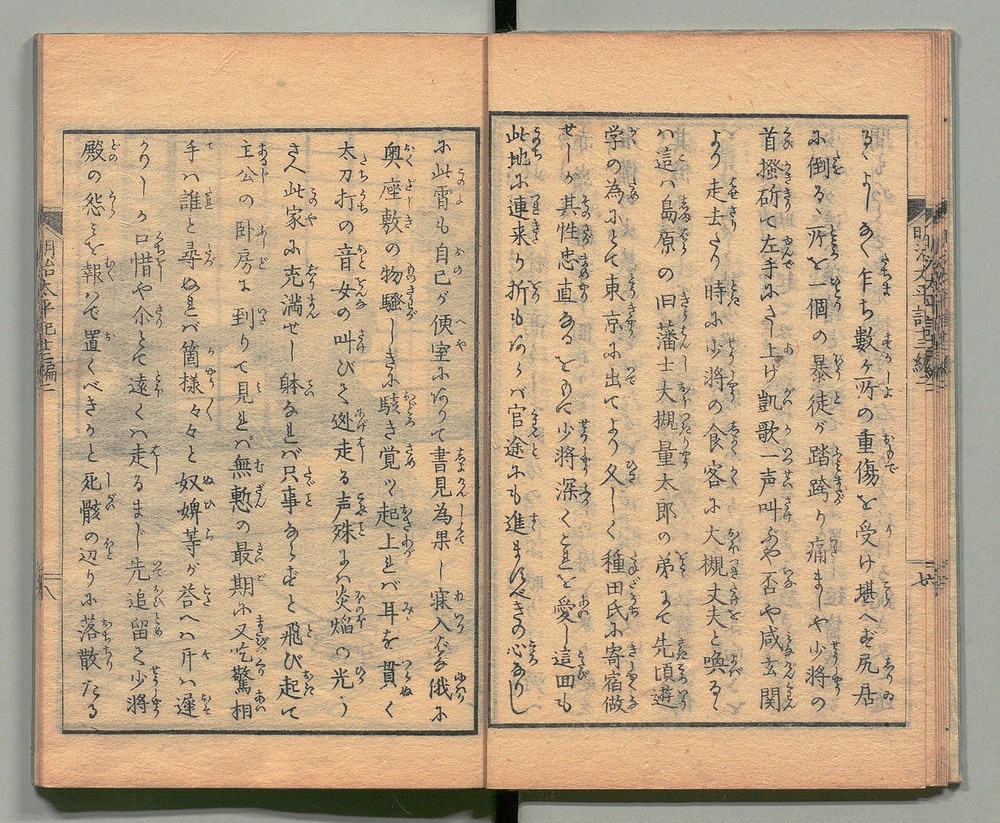 るゝよしなく乍ち數ヶ所の重傷を受け堪へず尻居
に倒るゝ所を一個の暴徒が踏跨り痛ましや少將の
首掻斫て左手にさし上げ凱歌一声叫ぶや否や咸玄関
より走去たり時に少將の食客に大槻丈夫と喚るゝ
ハ這ハ島原の旧藩士大槻量太郎の弟にて先頃遊
学の為にとて東京に出てより久しく種田氏に寄宿做
せしが其性忠直なるをもて少將深くこれを愛し這回も
此地に連来り折もあらバ官途にも進まるべきの心なりし
に此霄も自己が便室にありて書見為果し寐入たる俄に
奥座敷の物騒しきに駭き覚ツ起上れバ耳を貫く
太刀打の音女の叫びて迯走る声殊にハ炎焔の光り
さへ此家に充満せし躰なれバ只事ならずと飛び起て
主公の卧房に到りて見れバ無慙の最期に又吃驚相
手ハ誰と尋ぬれバ箇樣々々と奴婢等が荅へハ斤ハ遲
かりしか口惜や介とて遠くハ走るまじ先追留て少將
殿の怨ミを報ハで置くべきかと死骸の辺りに落散たる
明治太平記廿三編二
七
八